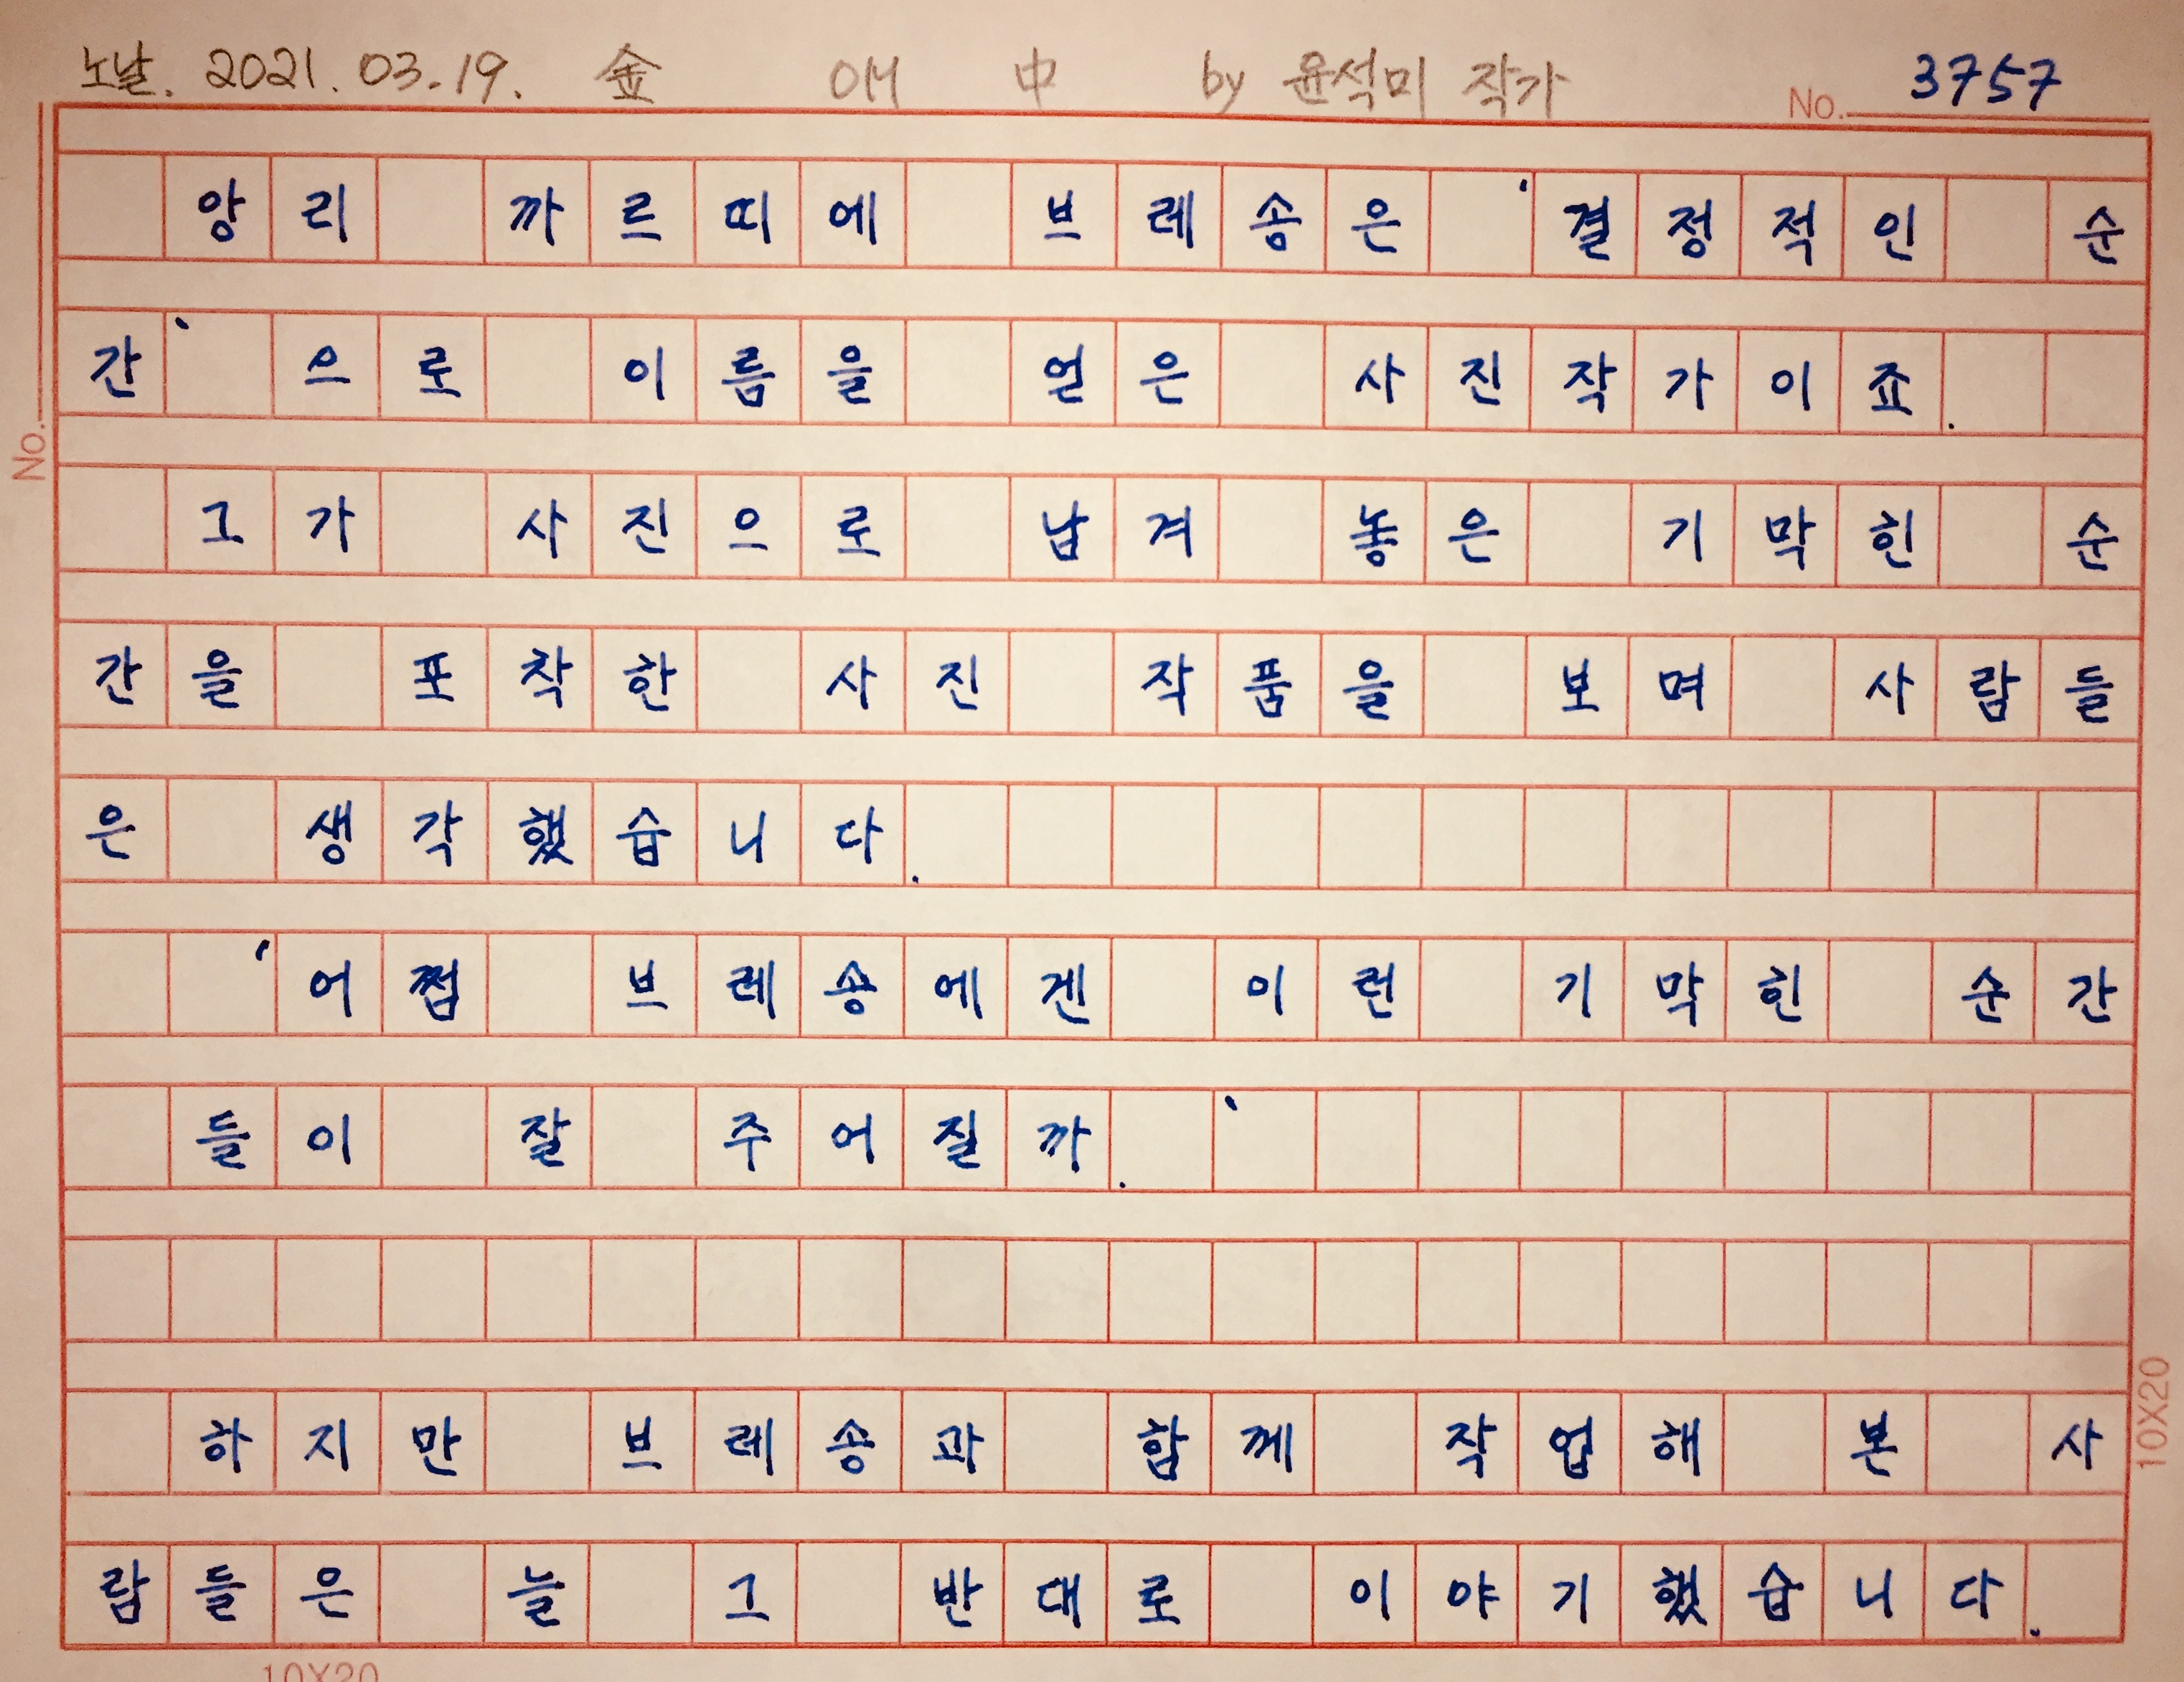 노날. 2021. 03. 19. 金 OH 中 by 윤석미 작가 No. 3757
앙리 까르띠에 브레송은 '결정적인 순
간'으로 이름을 얻은 사진작가이죠.
그가 사진으로 남겨 놓은 기막힌 순
간을 포착한 사진 작품을 보며 사람들
은 생각했습니다.
'어쩜 브레송에겐 이런 기막힌 순간
들이 잘 주어질까.'
하지만 브레송과 함께 작업해 본 사
람들은 늘 그 반대로 이야기했습니다.
No.
10X20
10X20